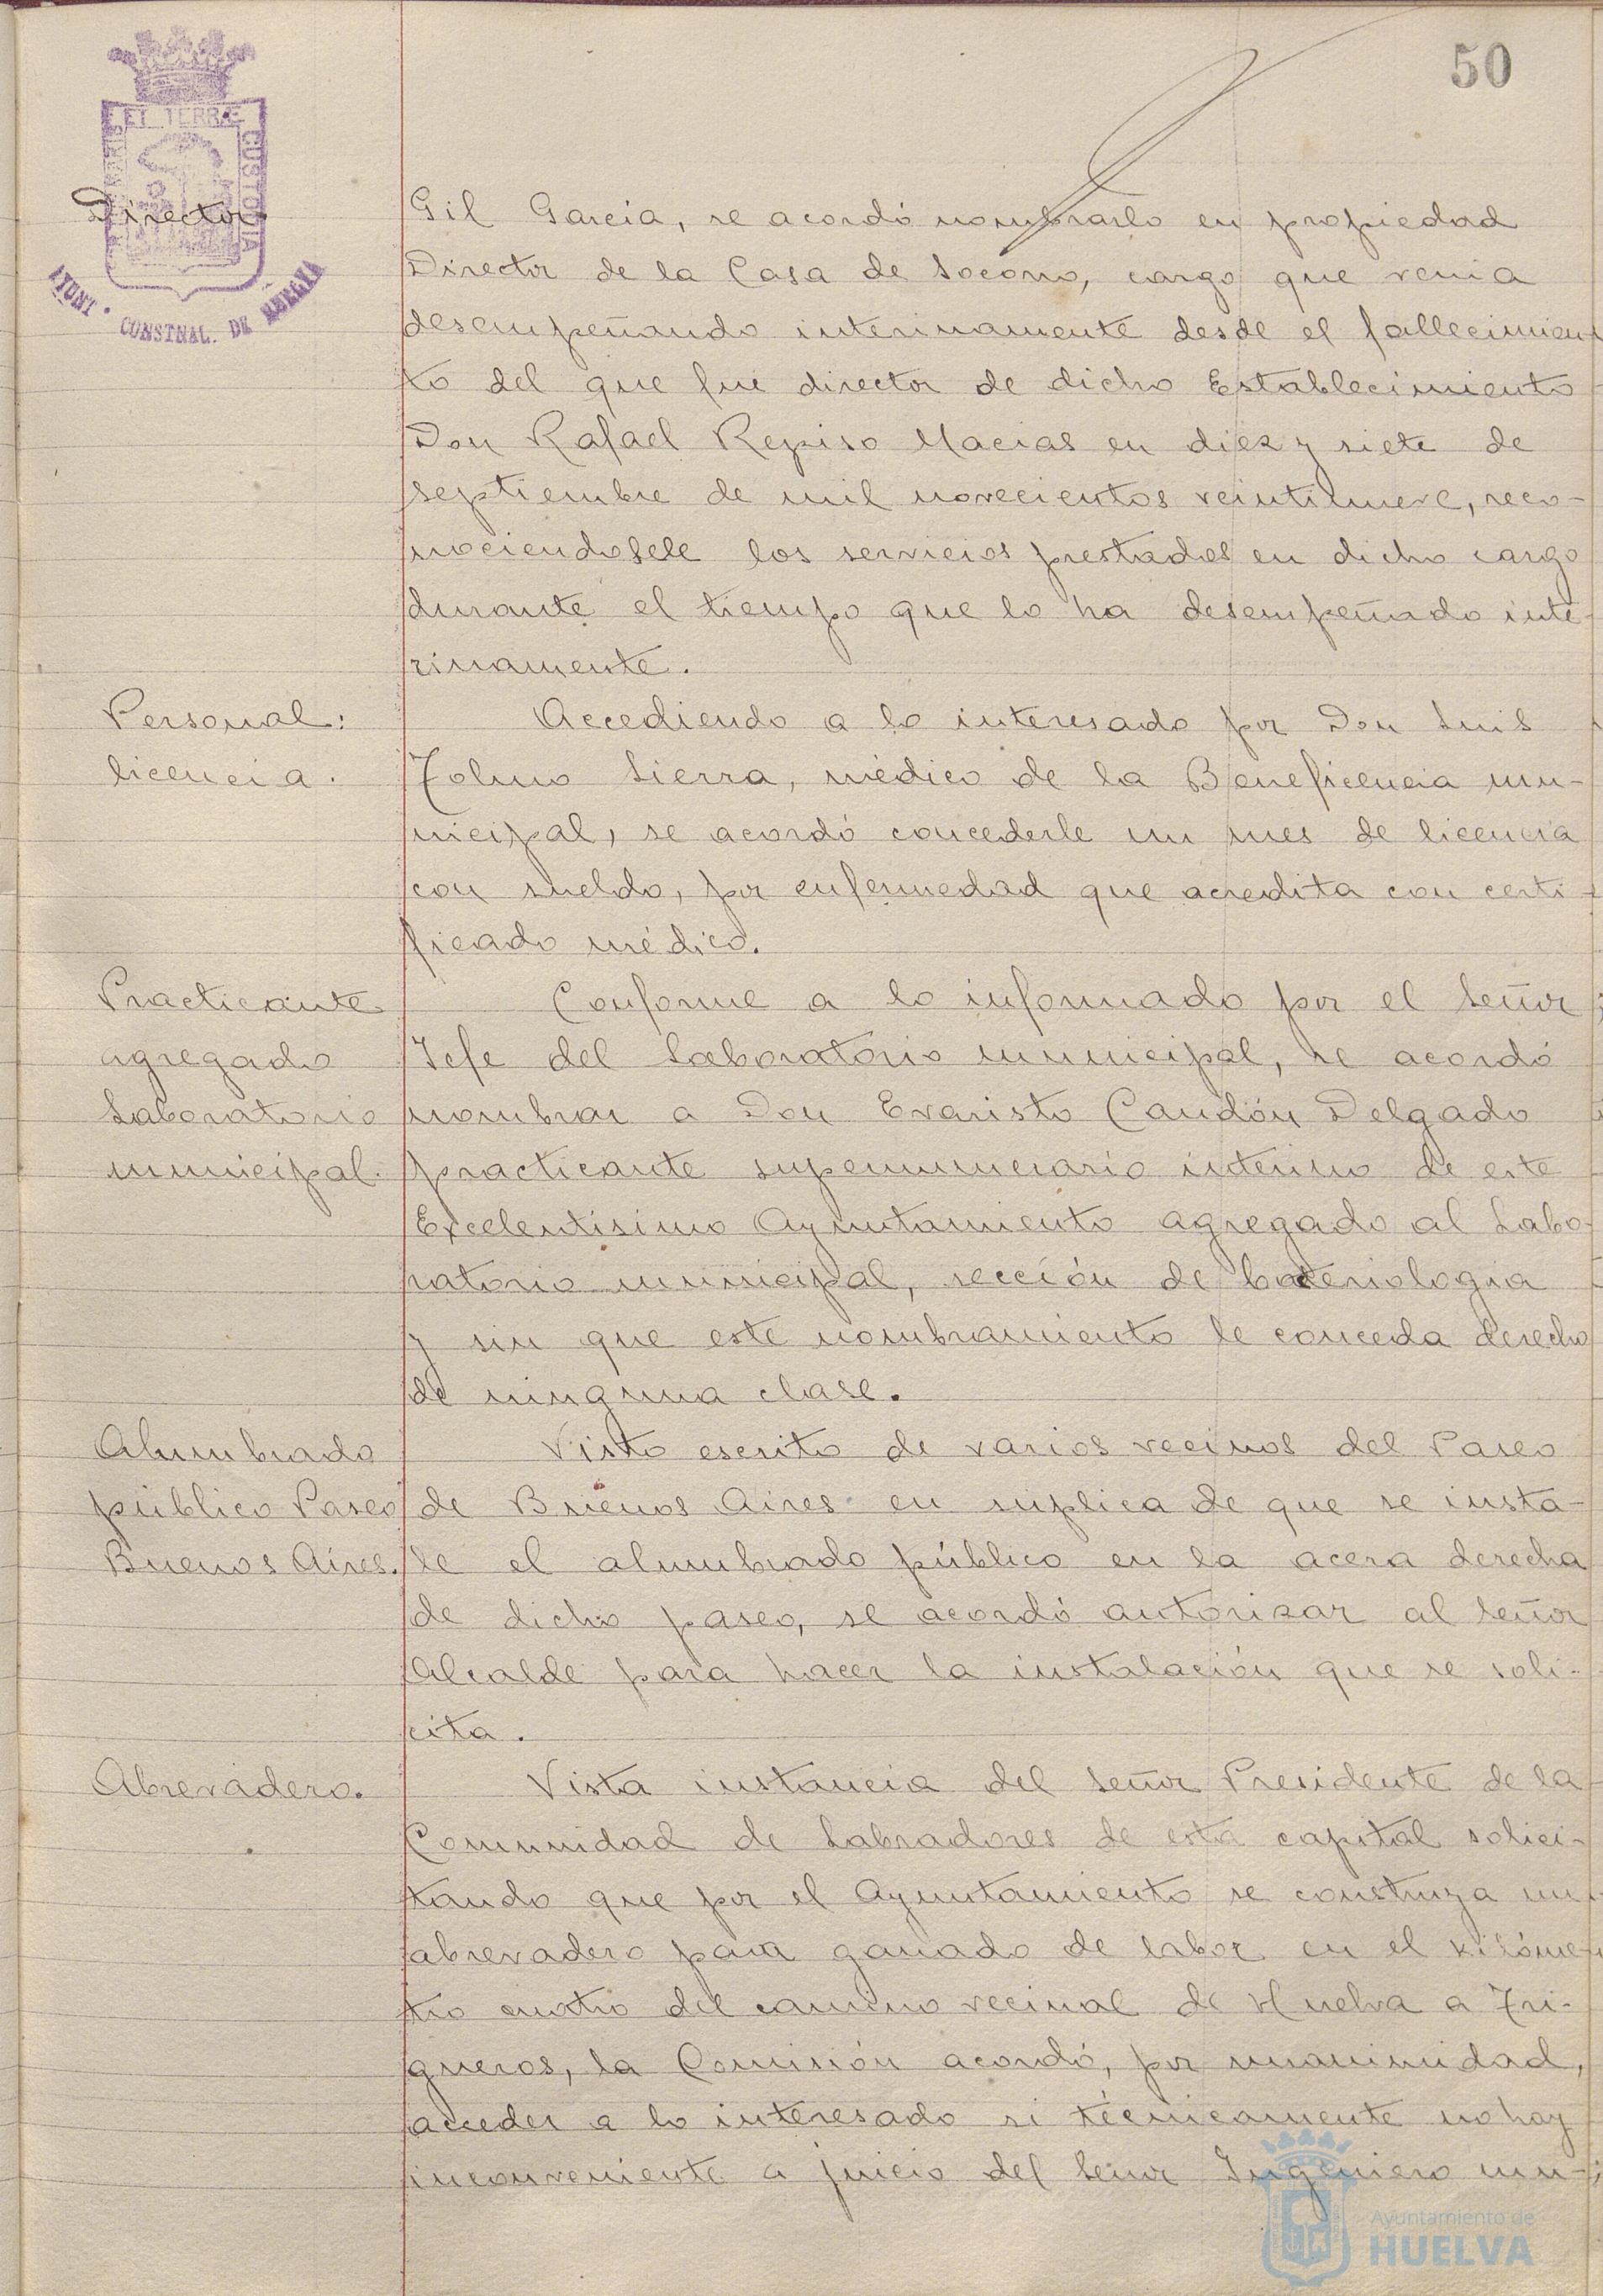 50
ET TERRÆ
CUSTODIA
AYUNT. CONSTNAL. DE HUELVA
Director
Gil García, se acordó nombrarlo en propiedad
Director de la Casa de Socorro, cargo que venia
desempeñando interinamente desde el fallecimien-
to del que fué director de dicho Establecimiento
Don Rafael Repiso Macias en diez y siete de
septiembre de mil novecientos veintinueve, reco-
nociendosele los servicios prestados en dicho cargo
durante el tiempo que lo ha desempeñado inte-
rinamente.
Personal:
licencia.
Accediendo a lo interesado por Don Luis
Sierra, médico de la Beneficencia mu-
nicipal, se acordó concederle un mes de licencia
con sueldo, por enfermedad que acredita con certi-
ficado médico.
Practicante
agregado
Laboratorio
municipal.
Conforme a lo informado por el Señor
Jefe del Laboratorio municipal, se acordó
nombrar a Don Evaristo Candón Delgado
practicante supernumerario interino de este
Excelentísimo Ayuntamiento agregado al Labo-
ratorio municipal, sección de bacteriologia
y sin que este nombramiento le conceda derecho
de ninguna clase.
Alumbrado
público Paseo
Buenos Aires.
Visto escrito de varios vecinos del Paseo
de Buenos Aires en suplica de que se insta-
le el alumbrado público en la acera derecha
de dicho paseo, se acordó autorizar al Señor
Alcalde para hacer la instalación que se soli-
cita.
Abrevadero.
Vista instancia del Señor Presidente de la
Comunidad de Labradores de esta capital solici-
tando que por el Ayuntamiento se construya un
abrevadero para ganado de labor en el kilóme-
tro cuatro del camino vecinal de Huelva a Tri-
gueros, la Comisión acordó, por unanimidad,
acceder a lo interesado si técnicamente no hay
inconveniente a juicio del Señor Ingeniero mu-
Ayuntamiento de
HUELVA